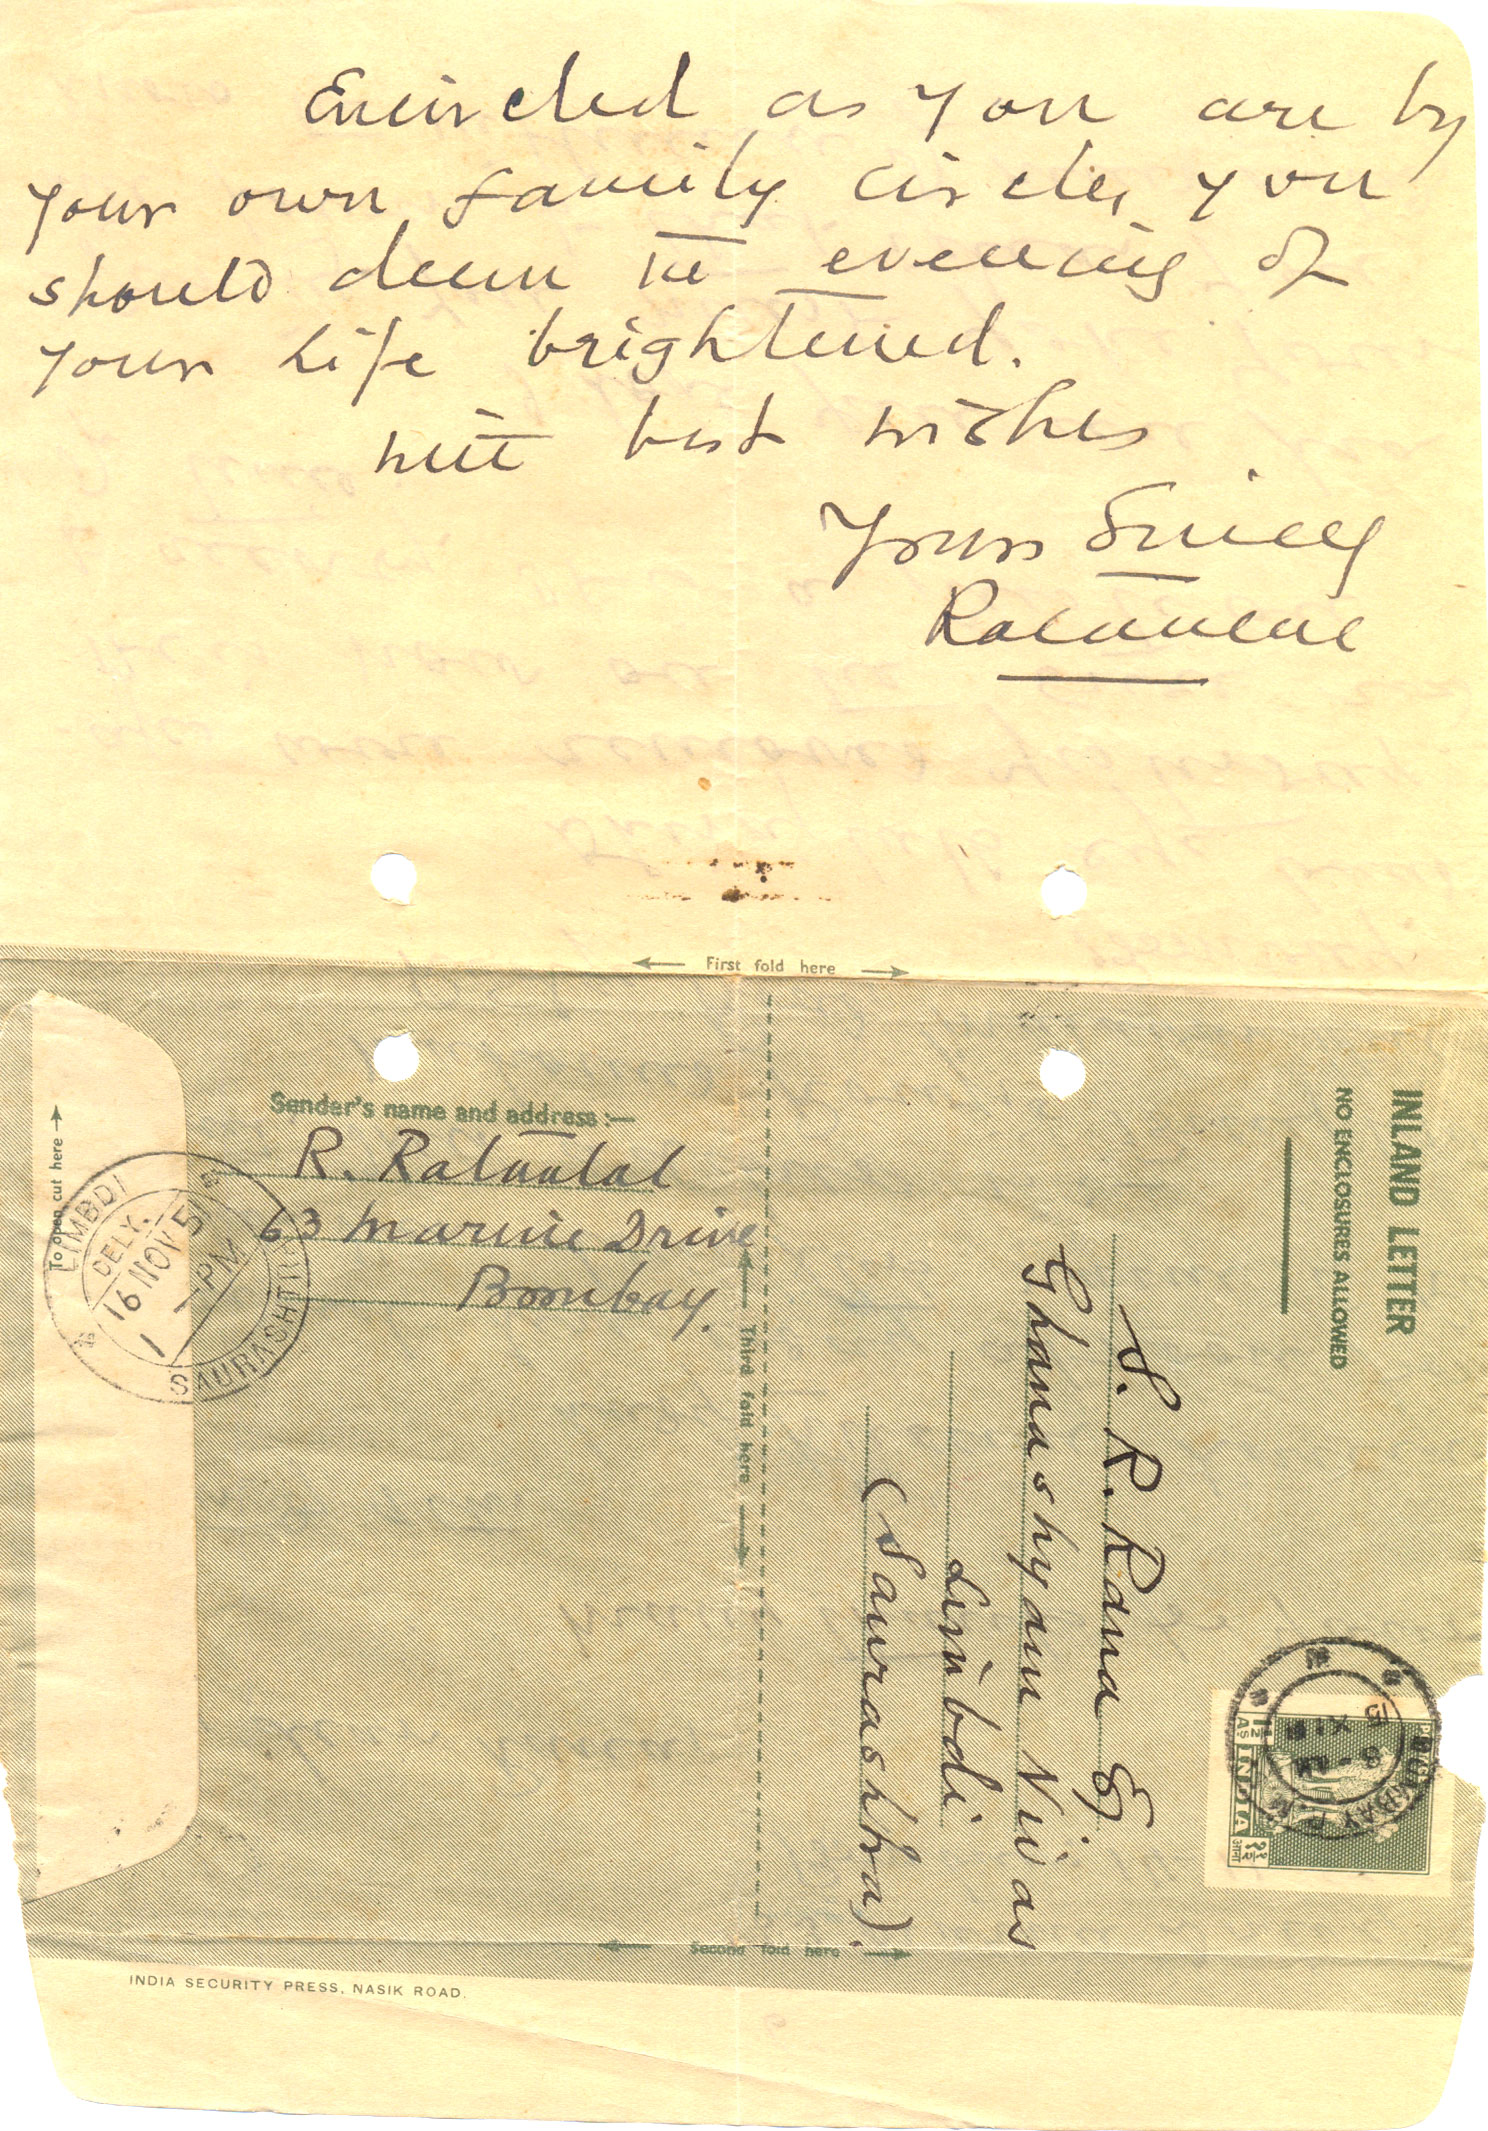 Encircled as you are by
your own family circle, you
should deem the evening of
your life brightened.
with best wishes
Yours Sincely
Ratanlal
← First fold here →
To open cut here →
Sender's name and address :—
R. Ratanlal
63 Marine Drive
Bombay.
LIMBDI
DELY.
16 NOV 51
1 - PM
SAURASHTRA
← Third fold here →
INLAND LETTER
NO ENCLOSURES ALLOWED
S. R. Rana Eq
Ghanashyam Nivas
Limbdi
(Saurashtra).
1½ AS
INDIA
POSTAGE
BOMBAY
← Second fold here →
INDIA SECURITY PRESS, NASIK ROAD.